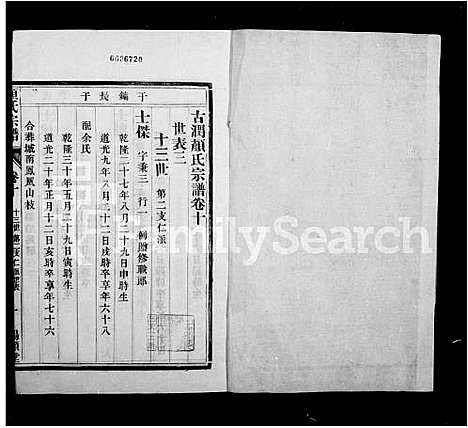 6636720
古潤顏氏宗譜卷十
世表三
十三世 第二支仁派
于鏞長子
士傑 字秉三 行一 例贈修職郎
乾隆二十七年八月二十九日申時生
道光九年八月二十二日戌時卒享年六十八
配余氏
乾隆三十年五月二十九日寅時生
道光二十年正月十二日亥時卒享年七十六
合葬城南鳳凰山枝
氏宗譜
卷十
十三世第二支仁派
FamilySearch